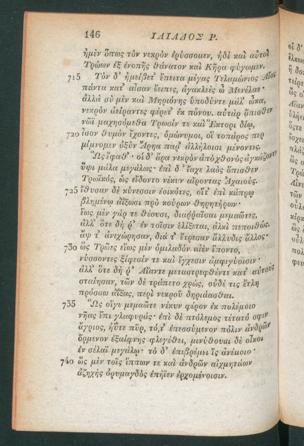 146 ΙΛΙΑΔΟΣ Ρ.
ἠμὲν ὅπως τὸν νεκρὸν ἐρύσσομεν, ἠδὲ καὶ αὐτοὶ
Τρώων ἐξ ἐνοπῆς θάνατον καὶ Κῆρα φύγωμεν.
715 Τὸν δ' ἠμείβετ' ἔπειτα μέγας Τελαμώνιος Αἴας·
πάντα κατ' αἶσαν ἔειπες, ἀγακλεὲς ὦ Μενέλαε·
ἀλλὰ σὺ μὲν καὶ Μηριόνης ὑποδύντε μάλ' ὦκα,
νεκρὸν ἀείραντες φέρετ' ἐκ πόνου. αὐτὰρ ὄπισθεν
νῶϊ μαχησόμεθα Τρωσίν τε καὶ Ἕκτορι δίῳ,
720 ἶσον θυμὸν ἔχοντες, ὁμώνυμοι, οἳ τοπάρος περ
μίμνομεν ὀξὺν Ἄρηα παρ' ἀλλήλοισι μένοντες.
Ὣς ἔφαθ'· οἱ δ' ἄρα νεκρὸν ἀπὸ χθονὸς ἀγκάζοντο
ὕψι μάλα μεγάλως· ἐπὶ δ' ἴαχε λαὸς ὄπισθεν
Τρωϊκὸς, ὡς εἴδοντο νέκυν αἴροντας Ἀχαιούς.
725 ἴθυσαν δὲ κύνεσσιν ἐοικότες, οἵτ' ἐπὶ κάπρῳ
βλημένῳ ἀΐξωσι πρὸ κούρων θηρητήρων·
ἕως μὲν γάρ τε θέουσι, διαῤῥαῖσαι μεμαῶτες,
ἀλλ' ὅτε δή ῥ' ἐν τοῖσιν ἑλίξεται, ἀλκὶ πεποιθὼς,
ἄψ τ' ἀνεχώρησαν, διά τ' ἔτρεσαν ἄλλυδις ἄλλος·
730 ὣς Τρῶες εἵως μὲν ὁμιλαδὸν αἰὲν ἕποντο,
νύσσοντες ξίφεσίν τε καὶ ἔγχεσιν ἀμφιγύοισιν·
ἀλλ' ὅτε δή ῥ' Αἴαντε μεταστρεφθέντε κατ' αὐτοὺς
σταίησαν, τῶν δὲ τράπετο χρὼς, οὐδέ τις ἔτλη
πρόσσω ἀΐξας, περὶ νεκροῦ δηριάασθαι.
735 Ὣς οἵγε μεμαῶτε νέκυν φέρον ἐκ πολέμοιο
νῆας ἔπι γλαφυράς· ἐπὶ δὲ πτόλεμος τέτατό σφιν
ἄγριος, ἠΰτε πῦρ, τό,τ' ἐπεσσύμενον πόλιν ἀνδρῶν
ὄρμενον ἐξαίφνης φλεγέθει, μινύθουσι δὲ οἶκοι
ἐν σέλαϊ μεγάλῳ· τὸ δ' ἐπιβρέμει ἲς ἀνέμοιο·
740 ὣς μὲν τοῖς ἵππων τε καὶ ἀνδρῶν αἰχμητάων
ἀζηχὴς ὀρυμαγδὸς ἐπήϊεν ἐρχομένοισιν.